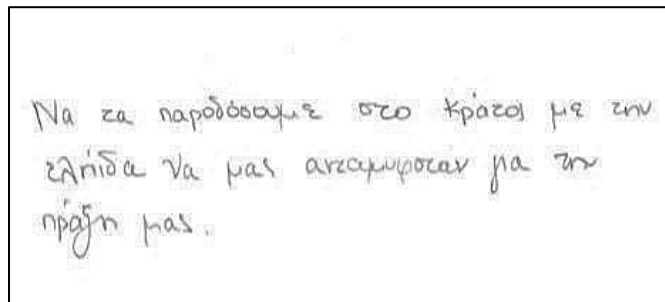 Να τα παροδόσουμε στο κράτος με την
ελπίδα να μας ανταμυφσταν για την
πράξη μας.